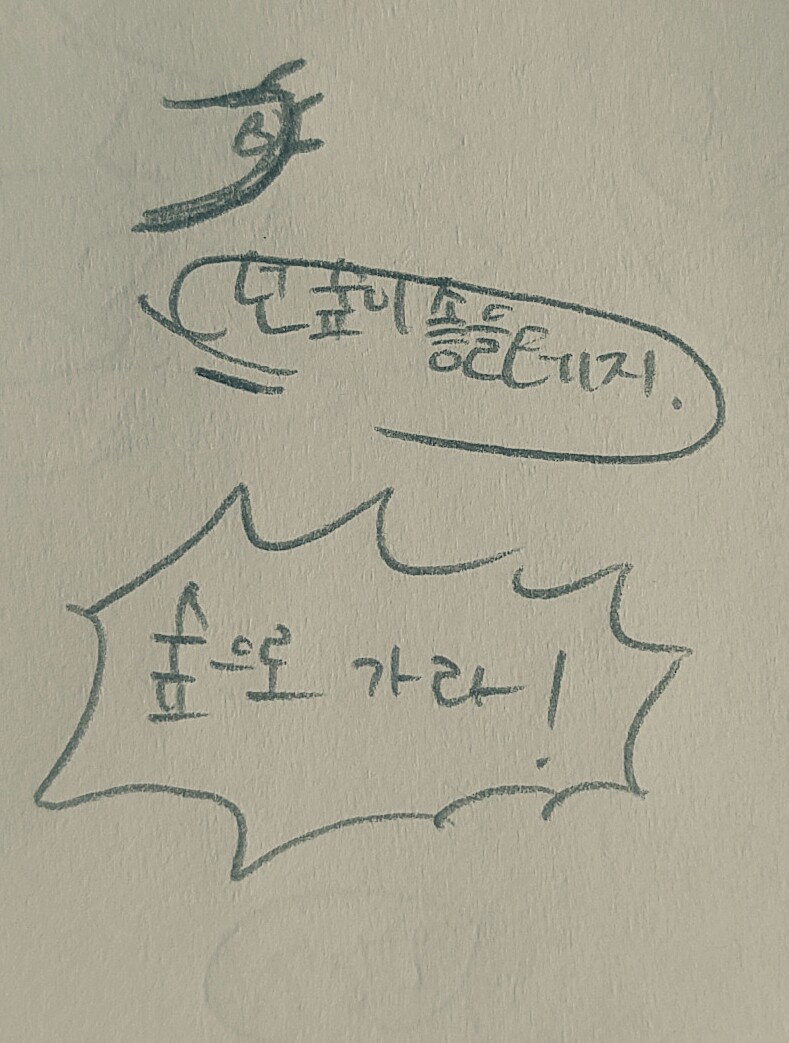 넌 숲이 좋을테지.
숲으로 가라!